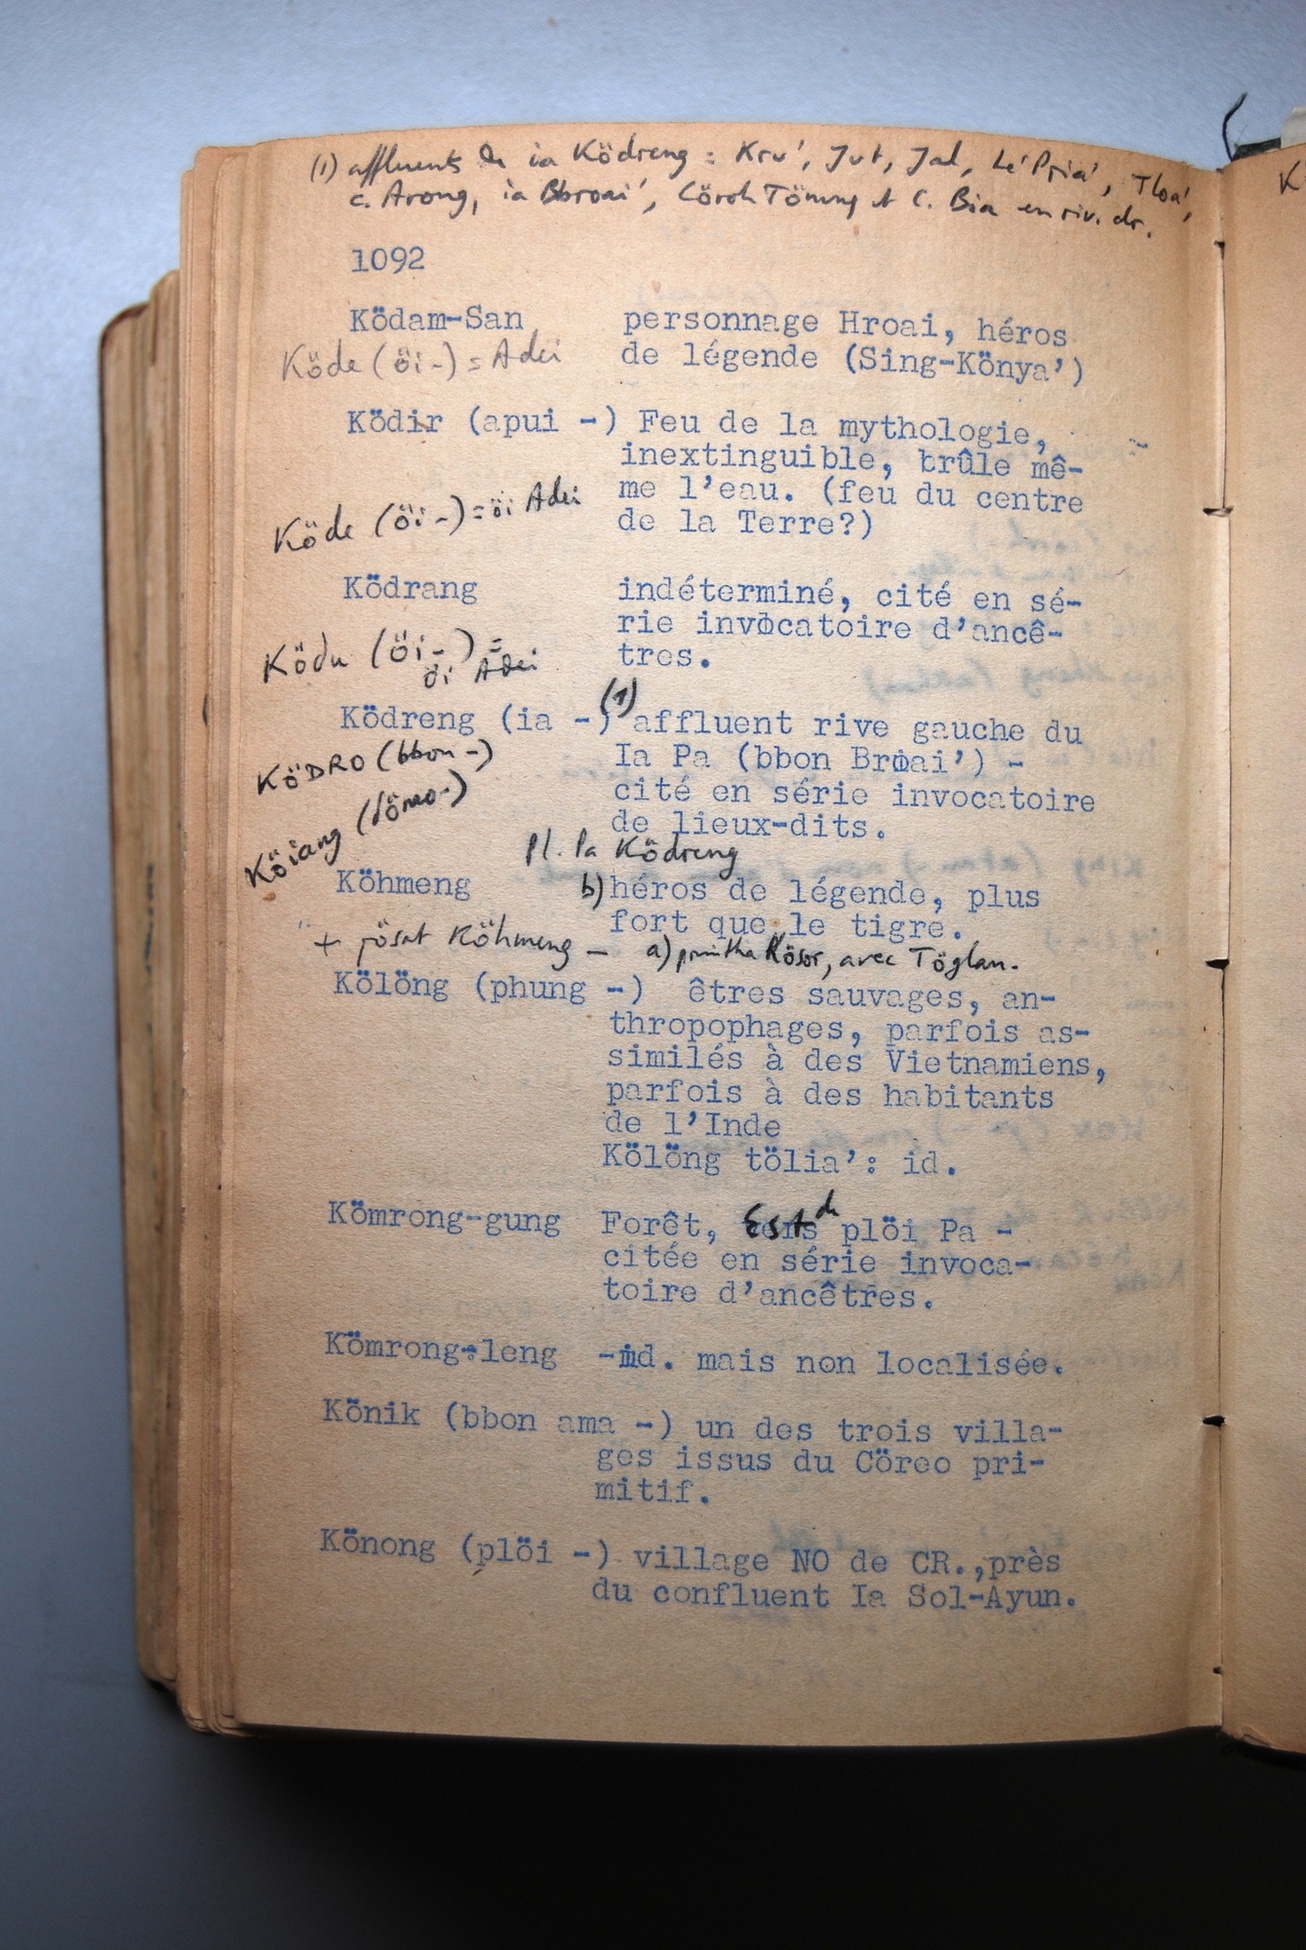 (1) affluents de ia Ködreng : Kru', Jut, Jal, Le' Pria', Tloa',
c. Arong, ia Bbroai', Cöroh Tönung et C. Bia en riv. dr.
1092
Ködam-San personnage Hroai, héros
de légende (Sing-Könya')
Köde (öi -) = Adei
Ködir (apui -) Feu de la mythologie,
inextinguible, brûle mê-
me l'eau. (feu du centre
de la Terre?)
Köde (öi -) = öi Adei
Ködrang indéterminé, cité en sé-
rie invocatoire d'ancê-
tres.
Ködu (öi -) =
öi Adei
Ködreng (ia -) (1) affluent rive gauche du
Ia Pa (bbon Broai') -
cité en série invocatoire
de lieux-dits.
KÖDRO (bbon -)
Köiang
Pl. Pa Ködreng
Köhmeng b) héros de légende, plus
fort que le tigre.
+ jösat Köhmeng - a) Kösor, avec Töglan.
Kölöng (phung -) êtres sauvages, an-
thropophages, parfois as-
similés à des Vietnamiens,
parfois à des habitants
de l'Inde
Kölöng tölia': id.
Kömrong-gung Forêt, Est de plöi Pa -
citée en série invoca-
toire d'ancêtres.
Kömrong-leng -id. mais non localisée.
Könik (bbon ama -) un des trois villa-
ges issus du Cöreo pri-
mitif.
Könong (plöi -) village NO de CR.,près
du confluent Ia Sol-Ayun.
K